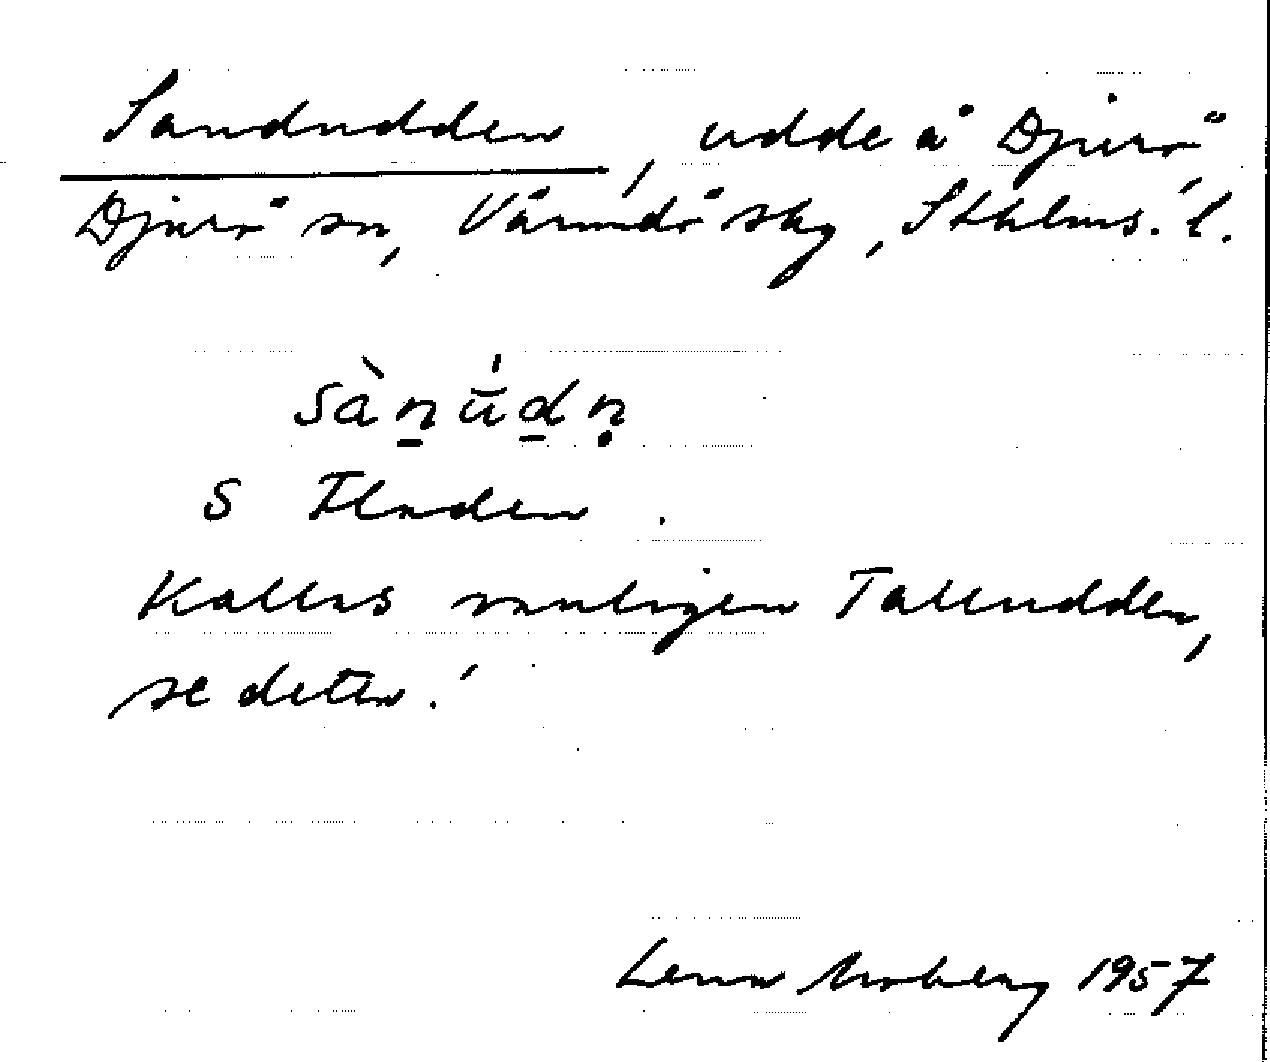 Sandudden, udde å Djurö,
Djurö sn, Värmdö skg, Sthlms. l.
sàn̠ū́d̠ṇ
S Fladen.
Kallas vanligen Talludden,
se detta!
Lena Moberg 1957